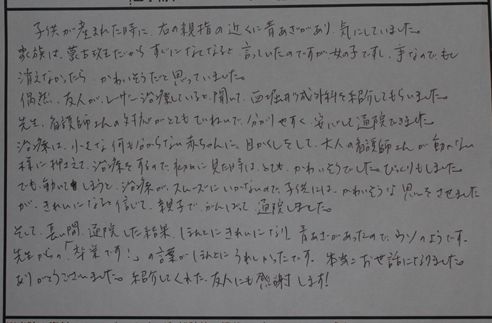 子供が産まれた時に、右の親指の近くに青あざがあり、気にしていました。
家族は、蒙古斑だからすぐになくなると言っていたのですが女の子ですし、手なのでもし
消えなかったら、かわいそうだと思っていました。
偶然、友人がレーザー治療していると聞いて、西堀形成外科を紹介してもらいました。
先生、看護師さんの対応がとてもていねいで、分かりやすく、安心して通院できました。
治療は、小さな何も分からない赤ちゃんに、目かくしをして、大人の看護師さんが動かない
様に押さえて、治療をするので、初めに見た時は、とても、かわいそうでした。びっくりもしました。
でも、動いてしまうと、治療が、スムーズにいかないので、子供には、かわいそうな思いをさせました
が、きれいになると信じて、親子でがんばって通院しました。
そして、長い間、通院した結果、ほんとにきれいになり、青あざがあったので、ウソのようです。
先生からの「卒業です！」の言葉がほんとにうれしかったです。本当にお世話になりました。
ありがとうございました。紹介してくれた、友人にも感謝します！